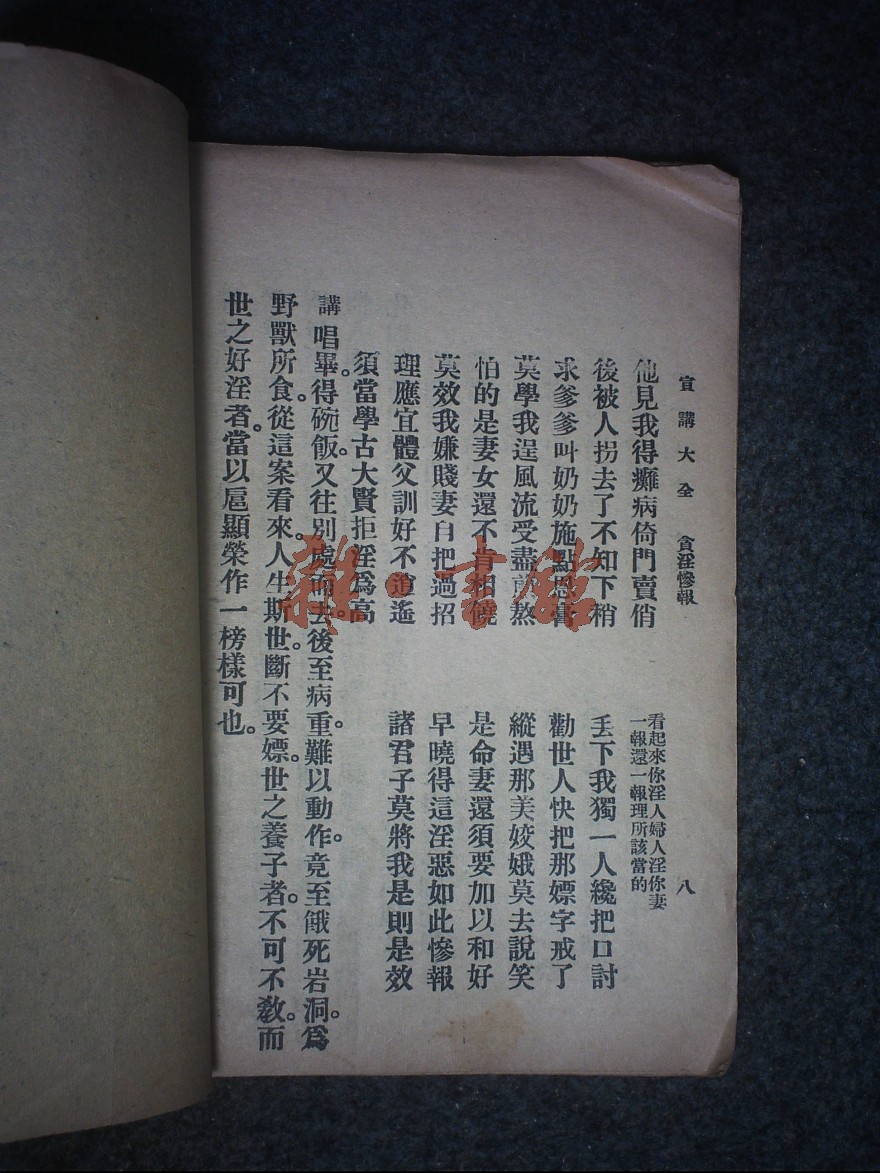 宣講大全 貪淫慘報 八
他見我得癱病倚門賣俏
看起來你淫人婦人淫你妻
一報還一報理所該當的
後被人拐去了不知下稍
丟下我獨一人纔把口討
求爹爹叫奶奶施點恩膏
勸世人快把那嫖字戒了
莫學我逞風流受盡煎熬
縱遇那美姣娥莫去說笑
怕的是妻女還不肯相饒
是命妻還須要加以和好
莫效我嫌賤妻自把過招
早曉得這淫惡如此慘報
理應宜體父訓好不逍遙
諸君子莫將我是則是效
須當學古大賢拒淫爲高
講唱畢。得碗飯。又往別處而去。後至病重。難以動作。竟至餓死岩洞。爲
野獸所食。從這案看來。人生斯世。斷不要嫖。世之養子者。不可不教。而
世之好淫者。當以扈顯榮作一榜樣可也。
雜·書館